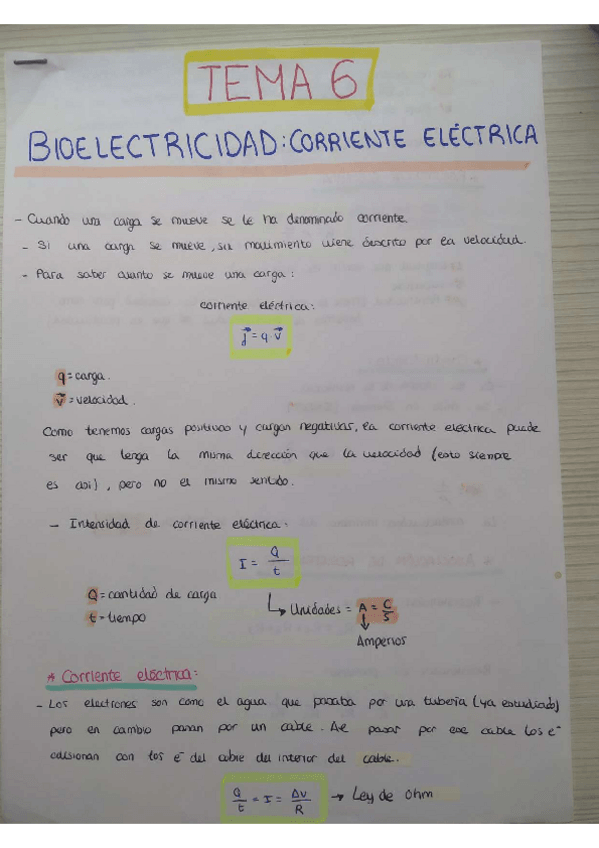 TEMA 6
BIOELECTRICIDAD: CORRIENTE ELÉCTRICA
- Cuando una carga se mueve se le ha denominado corriente.
- Si una carga se mueve, su movimiento viene descrito por la velocidad.
- Para saber cuanto se mueve una carga:
corriente eléctrica:
j⃗ = q · v⃗
q = carga.
v⃗ = velocidad.
Como tenemos cargas positivas y cargas negativas, la corriente eléctrica puede
ser que tenga la misma dirección que la velocidad (esto siempre
es así), pero no el mismo sentido.
- Intensidad de corriente eléctrica:
I = Q/t
Q = cantidad de carga
t = tiempo
↳ Unidades = A = C/S
↓
Amperios
* Corriente eléctrica:
- Los electrones son como el agua que pasaba por una tubería (ya estudiado)
pero en cambio pasan por un cable. Al pasar por ese cable los e⁻
colisionan con los e⁻ del cobre del interior del cable.
Q/t = I = Δv/R → Ley de Ohm